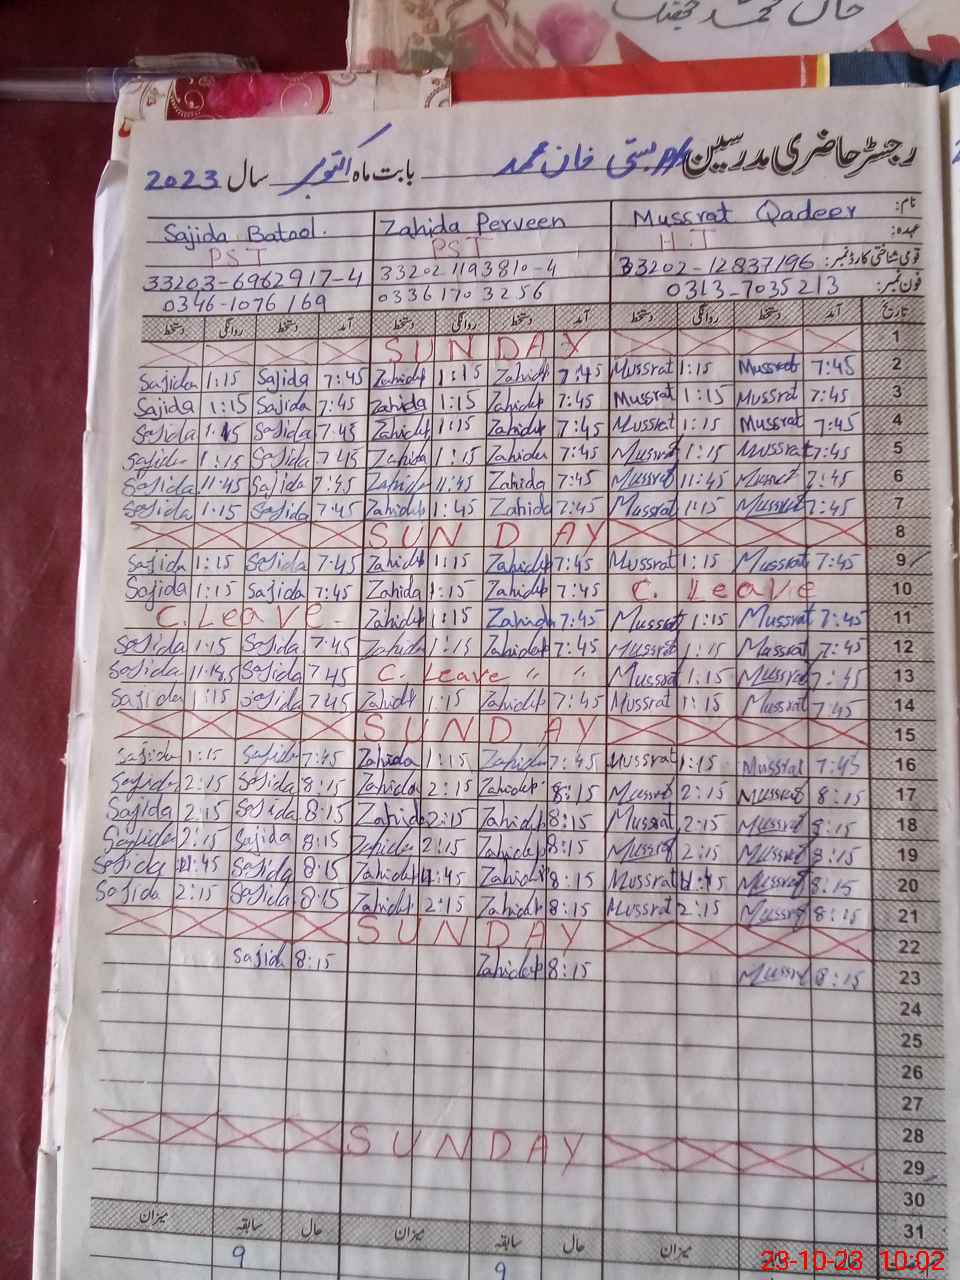 خان محمد جھنگ
رجسٹر حاضری مدرسین بستی خان محمد بابت ماہ اکتوبر سال 2023
نام: Mussrat Qadeer Zahida Perveen Sajida Batool.
عہدہ: H.T PST PST
قومی شناختی کارڈ نمبر: 33202-12837196 33202 1193810-4 33203-6962917-4
فون نمبر: 0313-7035213 0336170 3256 0346-1076169
تاریخ آمد دستخط روانگی دستخط آمد دستخط روانگی دستخط آمد دستخط روانگی دستخط
1 SUNDAY
2 7:45 Mussrat 1:15 Mussrat 7:45 Zahida 1:15 Zahida 7:45 Sajida 1:15 Sajida
3 7:45 Mussrat 1:15 Mussrat 7:45 Zahida 1:15 Zahida 7:45 Sajida 1:15 Sajida
4 7:45 Mussrat 1:15 Mussrat 7:45 Zahida 1:15 Zahida 7:45 Sajida 1:15 Sajida
5 7:45 Mussrat 1:15 Mussrat 7:45 Zahida 1:15 Zahida 7:45 Sajida 1:15 Sajida
6 7:45 Mussrat 11:45 Mussrat 7:45 Zahida 11:45 Zahida 7:45 Sajida 11:45 Sajida
7 7:45 Mussrat 1:15 Mussrat 7:45 Zahida 1:45 Zahida 7:45 Sajida 1:15 Sajida
8 SUNDAY
9 7:45 Mussrat 1:15 Mussrat 7:45 Zahida 1:15 Zahida 7:45 Sajida 1:15 Sajida
10 C. Leave 7:45 Zahida 1:15 Zahida 7:45 Sajida 1:15 Sajida
11 7:45 Mussrat 1:15 Mussrat 7:45 Zahida 1:15 Zahida C. Leave
12 7:45 Mussrat 1:15 Mussrat 7:45 Zahida 1:15 Zahida 7:45 Sajida 1:15 Sajida
13 7:45 Mussrat 1:15 Mussrat C. Leave " " 7:45 Sajida Sajida
14 7:45 Mussrat 1:15 Mussrat 7:45 Zahida 1:15 Zahida 7:45 Sajida 1:15 Sajida
15 SUNDAY
16 7:45 Mussrat 1:15 Mussrat 7:45 Zahida 1:15 Zahida 7:45 Sajida 1:15 Sajida
17 8:15 Mussrat 2:15 Mussrat 8:15 Zahida 2:15 Zahida 8:15 Sajida 2:15 Sajida
18 8:15 Mussrat 2:15 Mussrat 8:15 Zahida 2:15 Zahida 8:15 Sajida 2:15 Sajida
19 8:15 Mussrat 2:15 Mussrat 8:15 Zahida 2:15 Zahida 8:15 Sajida 2:15 Sajida
20 8:15 Mussrat Mussrat 8:15 Zahida Zahida 8:15 Sajida Sajida
21 8:15 Mussrat 2:15 Mussrat 8:15 Zahida 2:15 Zahida 8:15 Sajida 2:15 Sajida
22 SUNDAY
23 8:15 Mussrat 8:15 Zahida 8:15 Sajida
24
25
26
27
28
29 SUNDAY
30
31
میزان حال سابقہ میزان حال سابقہ میزان
9 9
23-10-23 10:02